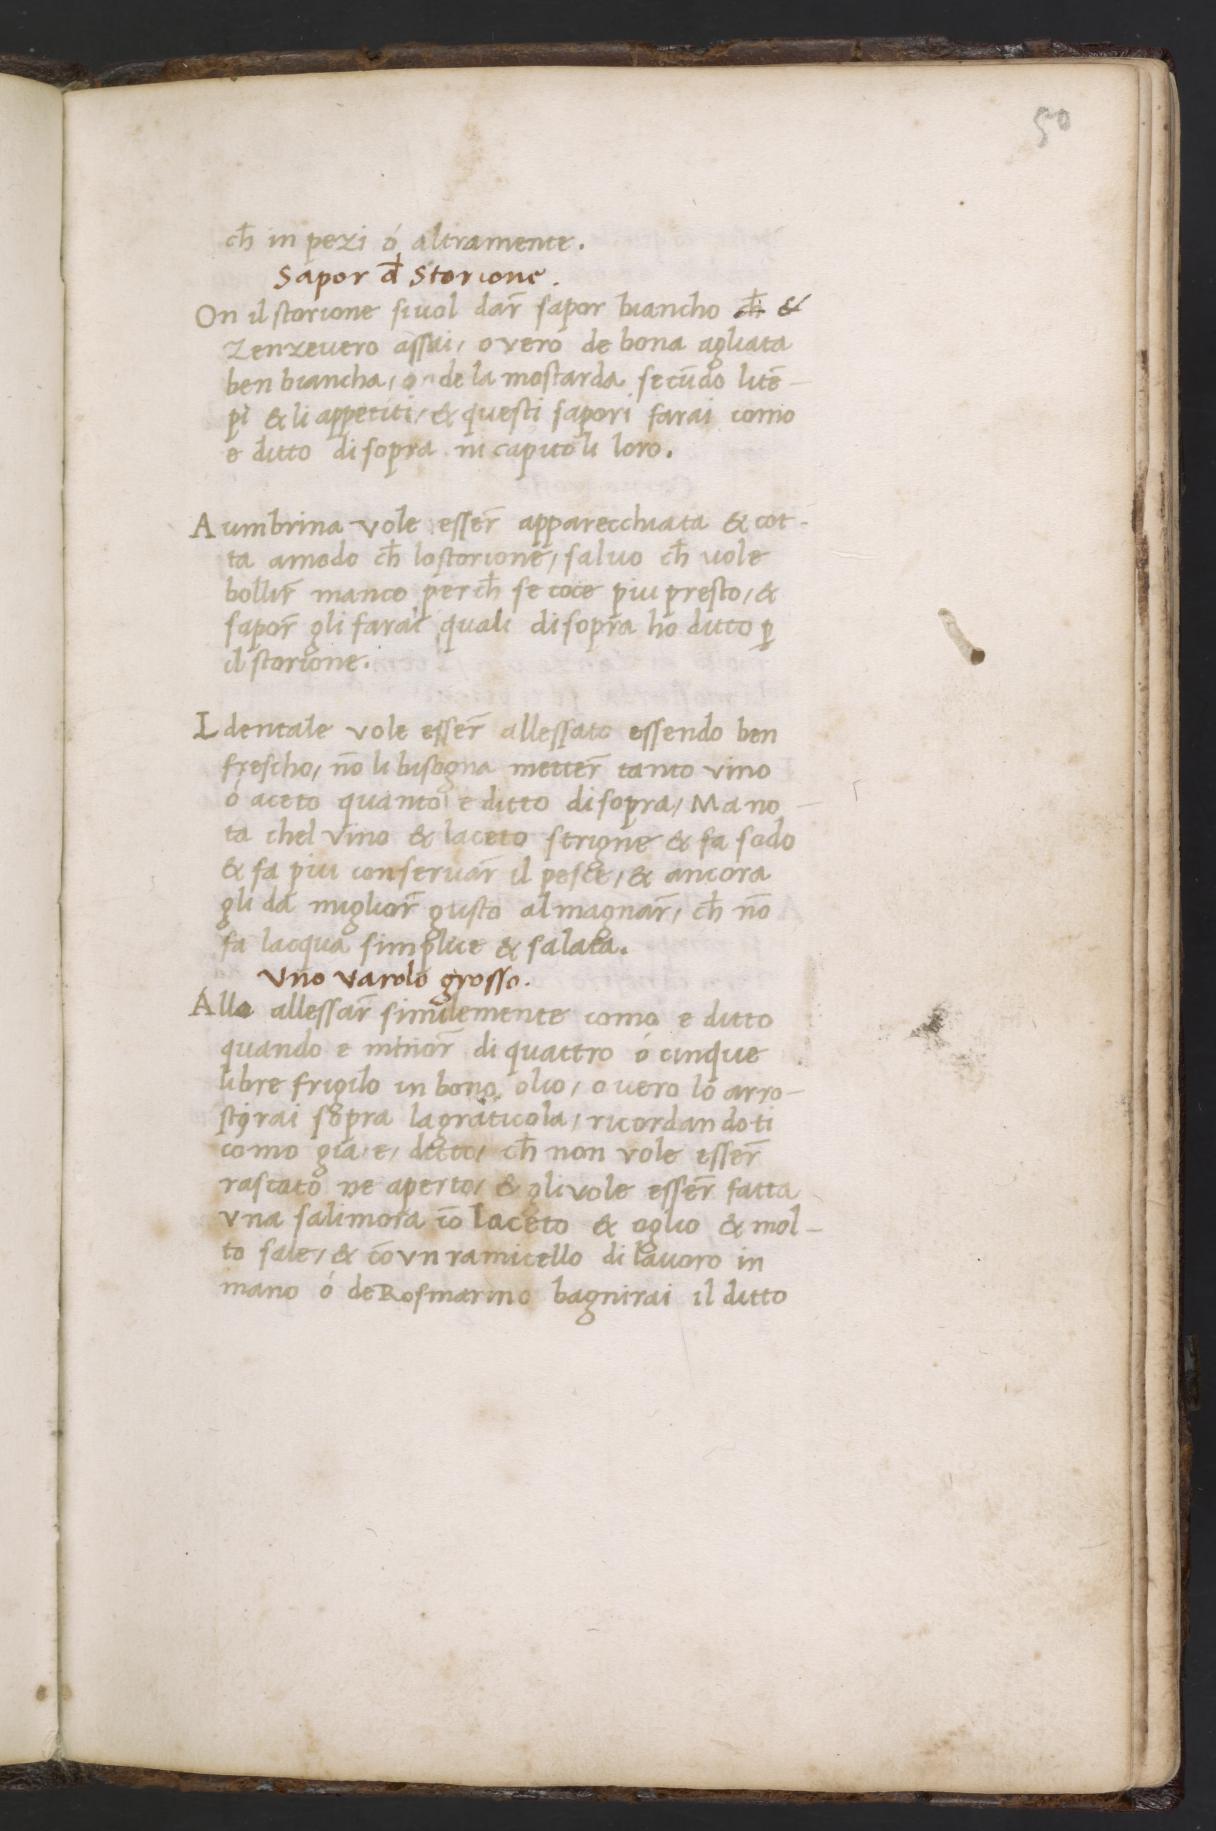 50
ch̄ in pezi ó altramente.
Sapor d̄ Storione.
On il storione si vol dar̄ sapor biancho ch̄ &
Zenzevero assai, o vero de bona agliata
ben biancha, o de la mostarda secūdo li tē-
pi & li appetiti, & questi sapori farai como
e ditto di sopra in capitoli loro.
A umbrina vole esser̄ apparecchiata & cot-
ta amodo ch̄ lo storione, salvo ch̄ vole
bollir̄ manco perch̄ se coce piu presto, &
sapor̄ gli farai quali di sopra ho ditto p̱
il storione.
L dentale vole esser̄ allessato essendo ben
frescho, nō li bisogna metter̄ tanto vino
ó aceto quanto e ditto di sopra, Ma no-
ta chel vino & laceto strigne & fa sodo
& fa piu conservar̄ il pesce, & ancora
gli da miglior̄ gusto al magnar̄, ch̄ nō
fa lacqua simplice & salata.
Uno varolo grosso.
Allo allessar̄ similemente como e ditto
quando e minor̄ di quattro ó cinque
libre frigilo in bono olio, o vero lo arro-
stirai sopra la graticola, ricordandoti
como gia e, ditto, ch̄ non vole esser̄
rascato ne aperto, & gli vole esser̄ fatta
una salimora cō laceto & oglio & mol-
to sale, & cō un ramicello di lavoro in
mano ó de Rosmarino bagnirai il ditto